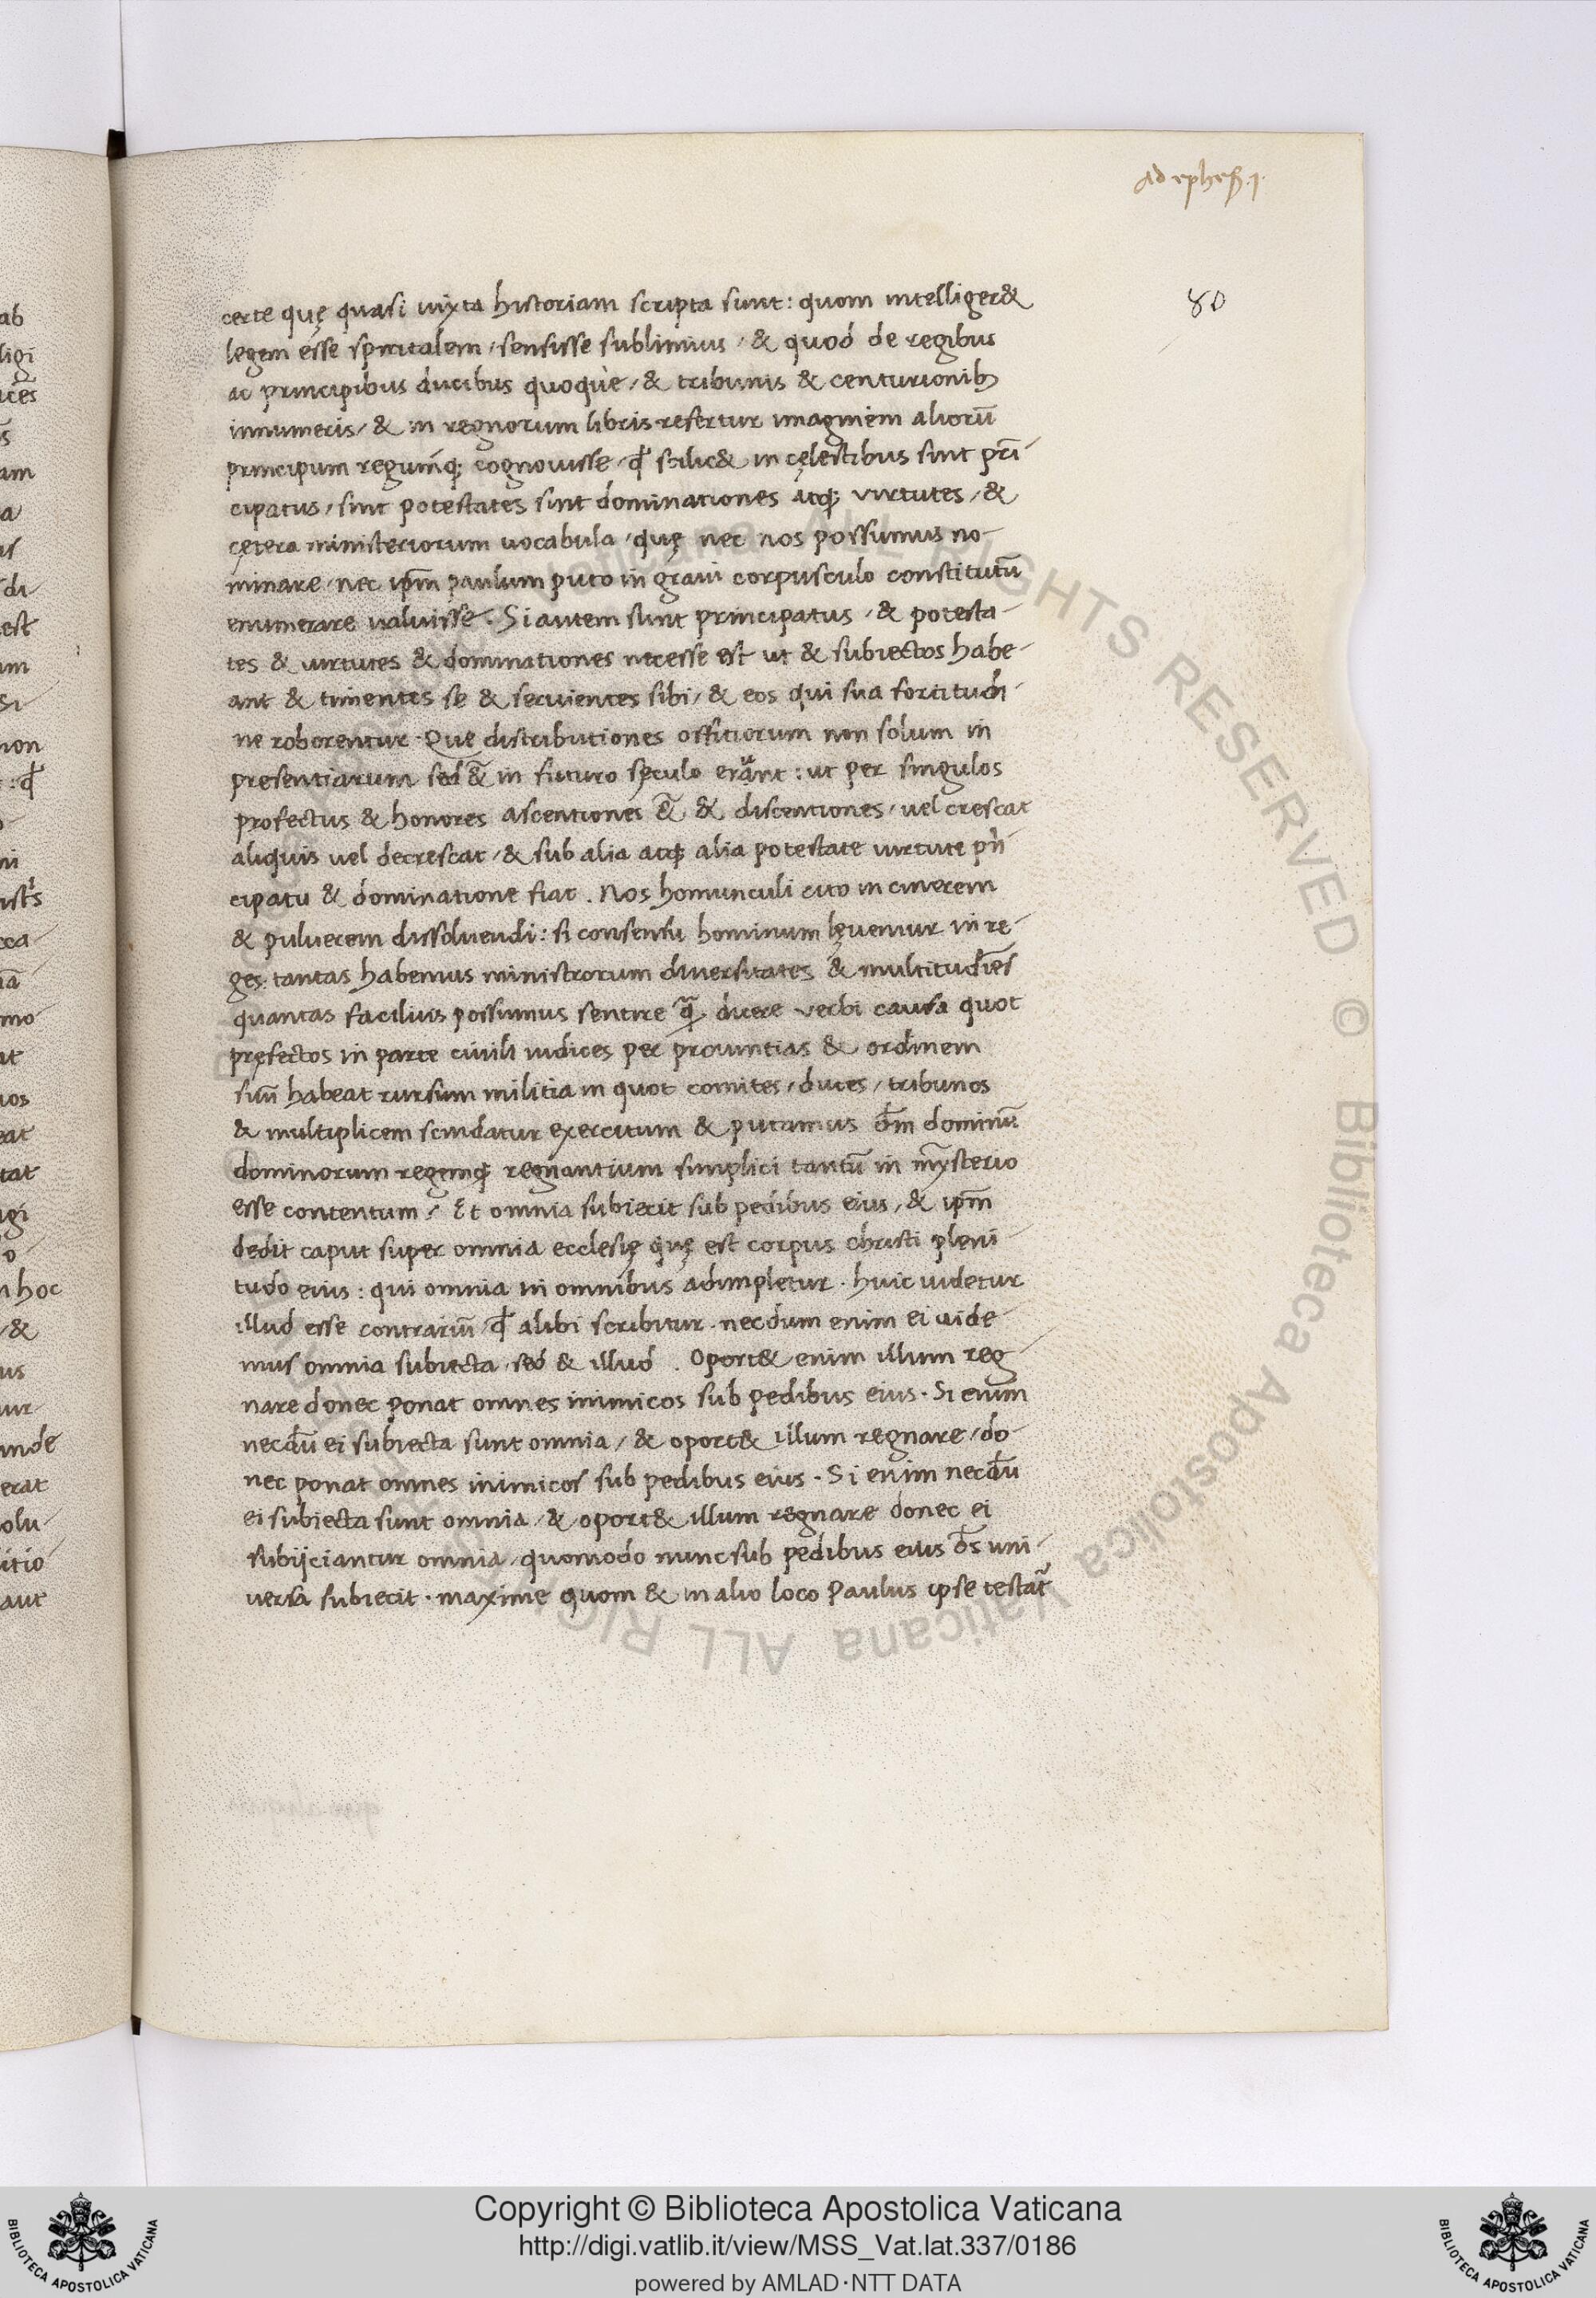 Ad ephes. 1.
80
certe quę quasi iuxta historiam scripta sunt: quom intelliger&
legem esse spiritalem / sensisse sublimius / & quod de regibus
ac principibus ducibus quoque / & tribunis & centurionib3
innumeris / & in regnorum libris refertur imaginem aliorū
principum regumq; cognouisse / qď scilic& in cęlestibus sint prī-
cipatus / sint potestates sint dominationes atq; virtutes / &
cętera ministeriorum uocabula / quę nec nos possumus no-
minare / nec ip̄m paulum puto in graui corpusculo constitutū
enumerare valuisse. Si autem sunt principatus / & potesta-
tes & uirtutes & dominationes necesse est ut & subiectos habe-
ant & timentes se & seruientes sibi / & eos qui sua fortitudi-
ne roborentur. Que distributiones offitiorum non solum in
presentiarum sed &̄ in futuro sęculo erunt: ut per singulos
profectus & honores ascentiones &̄ & discentiones / vel crescat
aliquis vel decrescat / & sub alia atq; alia potestate uirtute prin-
cipatu & dominatione fiat. Nos homunculi cito in cinerem
& puluerem dissoluendi: si consensu hominum lęuemur in re-
ges: tantas habemus ministrorum diuersitates & multitudīes
quantas facilius possumus sentire q̃ dicere verbi causa quot
pręfectos in parte ciuili iudices per prouintias & ordinem
suū habeat rursum militia in quot comites / duces / tribunos
& multiplicem scindatur exercitum & putamus dm̄ dominū
dominorum regemq; regnantium simplici tantū in mysterio
esse contentum / Et omnia subiecit sub pedibus eius / & ip̄m
dedit caput super omnia ecclesię quę est corpus christi pleni-
tudo eius: qui omnia in omnibus adimpletur. huic uidetur
illud esse contrariū qď alibi scribitur. necdum enim ei uide-
mus omnia subiecta. sed & illud. Oport& enim illum reg-
nare donec ponat omnes inimicos sub pedibus eius. Si enim
necdū ei subiecta sunt omnia / & oport& illum regnare / do-
nec ponat omnes inimicos sub pedibus eius. Si enim necdū
ei subiecta sunt omnia / & oport& illum regnare donec ei
subijciantur omnia / quomodo nunc sub pedibus eius ds̄ uni-
uersa subiecit. maxime quom & in alio loco Paulus ipse testat̄
Copyright © Biblioteca Apostolica Vaticana
http://digi.vatlib.it/view/MSS_Vat.lat.337/0186
powered by AMLAD·NTT DATA